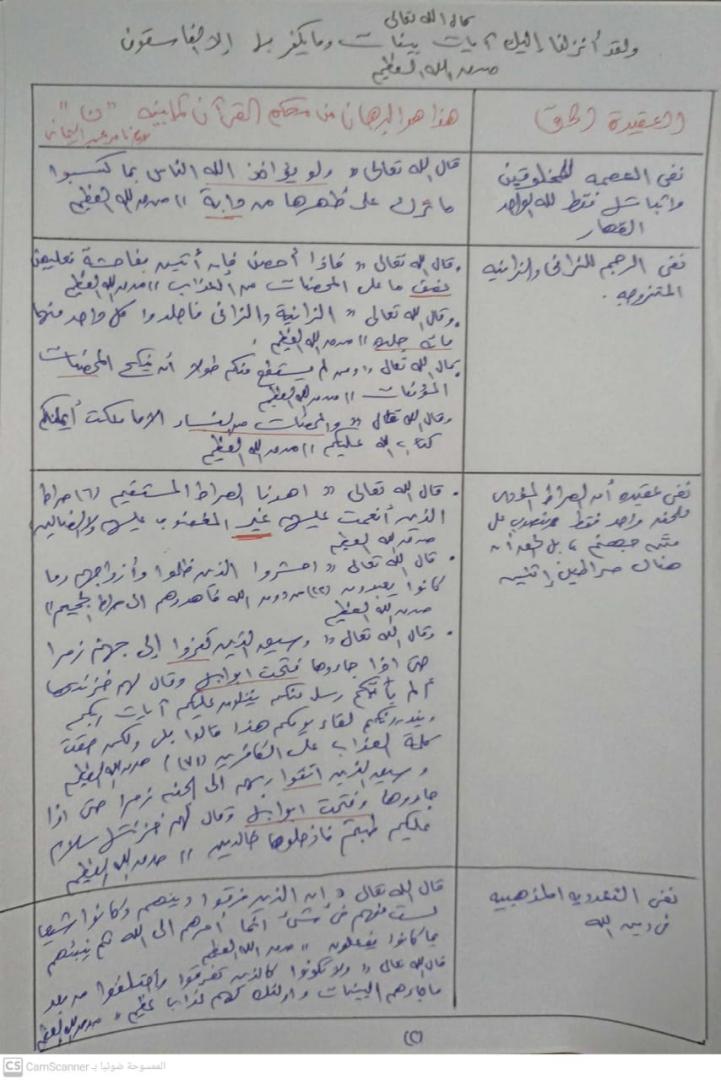 قال الله تعالى
ولقد أنزلنا إليك آيات بينات وما يكفر بها إلا الفاسقون
صدق الله العظيم
العقيدة الحق
هذا هو البرهان من محكم القرآن كما بينه "ن"
ناصر محمد اليماني
نفي العصمه للمخلوقين
واثباتها فقط لله الواحد
القهار
قال الله تعالى « ولو يؤاخذ الله الناس بما كسبوا
ما ترك على ظهرها من دابة » صدق الله العظيم
نفي الرجم للزاني والزانيه
المتزوجه .
. قال الله تعالى « فإذا أحصن فإن أتين بفاحشة فعليهن
نصف ما على المحصنات من العذاب » صدق الله العظيم
. وقال الله تعالى « الزانية والزاني فاجلدوا كل واحد منهما
مائة جلدة » صدق الله العظيم .
قال الله تعالى « ومن لم يستطع منكم طولا أن ينكح المحصنات
المؤمنات » صدق الله العظيم
وقال الله تعالى « والمحصنات من النساء الا ما ملكت أيمانكم
كتاب الله عليكم » صدق الله العظيم
نفي عقيدة أن الصراط المؤدي
للجنه واحد فقط منصوب على
متن جهنم بل نعتقد أنه
هناك صراطين إثنين
. قال الله تعالى « اهدنا الصراط المستقيم (٦) صراط
الذين أنعمت عليهم غير المغضوب عليهم ولا الضالين
صدق الله العظيم
. قال الله تعالى « احشروا الذين ظلموا وأزواجهم وما
كانوا يعبدون (٢٢) من دون الله فاهدوهم الى صراط الجحيم »
صدق الله العظيم
. وقال الله تعالى « وسيق الذين كفروا إلى جهنم زمرا
حتى اذا جاءوها فتحت ابوابها وقال لهم خزنتها
ألم يأتكم رسل منكم يتلون عليكم آيات ربكم
وينذرونكم لقاء يومكم هذا قالوا بلى ولكن حقت
كلمة العذاب على الكافرين (٧١) صدق الله العظيم
وسيق الذين اتقوا ربهم الى الجنه زمرا حتى اذا
جاءوها وفتحت ابوابها وقال لهم خزنتها سلام
عليكم طبتم فادخلوها خالدين » صدق الله العظيم
نفي التعدديه المذهبيه
في دين الله
قال الله تعالى « إن الذين فرقوا دينهم وكانوا شيعا
لست منهم في شيء انما أمرهم الى الله ثم ينبئهم
بما كانوا يفعلون » صدق الله العظيم
قال الله تعالى « ولا تكونوا كالذين تفرقوا واختلفوا من بعد
ما جاءهم البينات واولئك لهم عذاب عظيم » صدق الله العظيم
CS CamScanner الممسوحة ضوئيا بـ